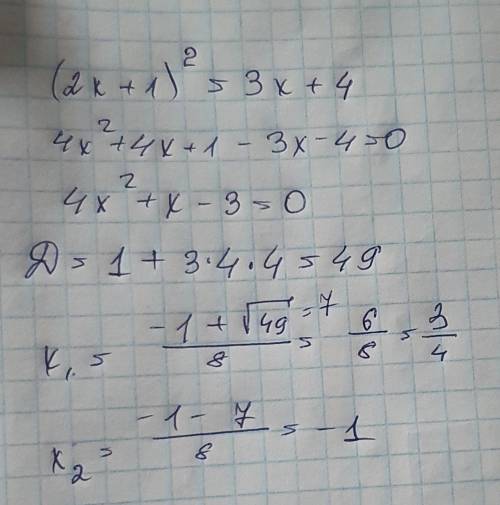 (2x + 1)² = 3x + 4
4x² + 4x + 1 - 3x - 4 = 0
4x² + x - 3 = 0
D = 1 + 3·4·4 = 49
x₁ = (-1 + √49 = 7)/8 = 6/8 = 3/4
x₂ = (-1 - 7)/8 = -1